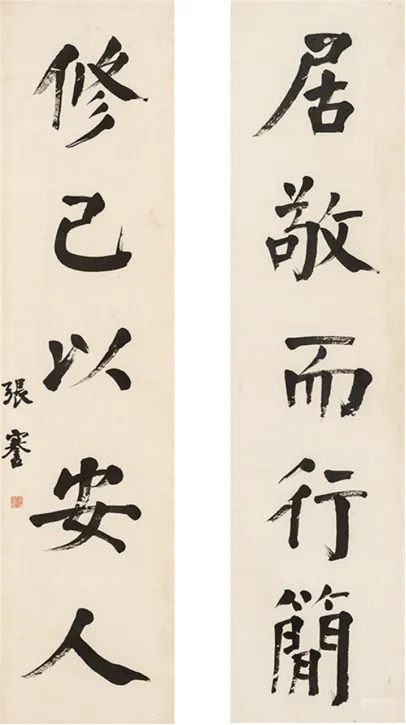 居敬而行簡
修己以安人
張謇